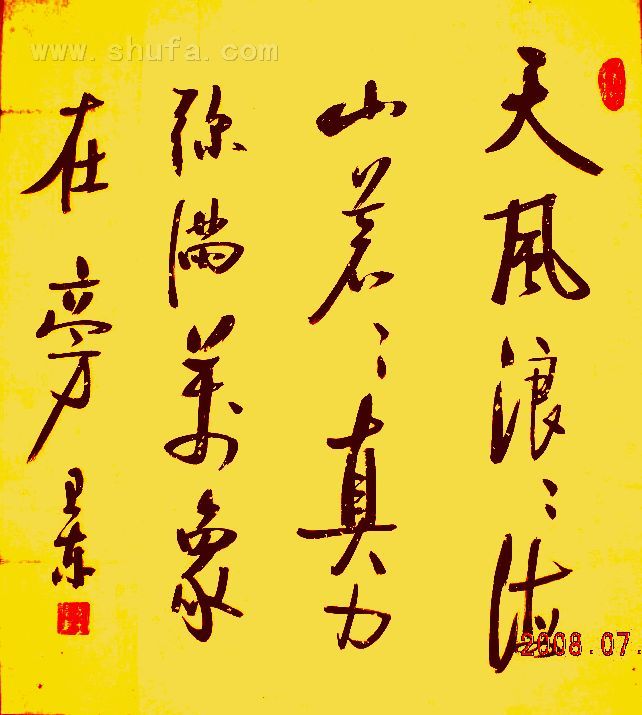 www.shufa.com
天風浪〻海
山蒼〻真力
弥满萬象
在旁
2008.07.